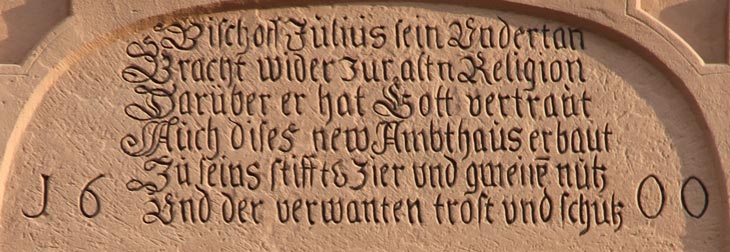 Bischof Julius sein Undertan
Bracht wider zur altn Religion
Darüber er hat Gott vertraut
Auch dises new Ambthaus erbaut
Zu seins stiffts Zier und gmeinē nutz
Und der verwanten trost vnd schutz
16 00